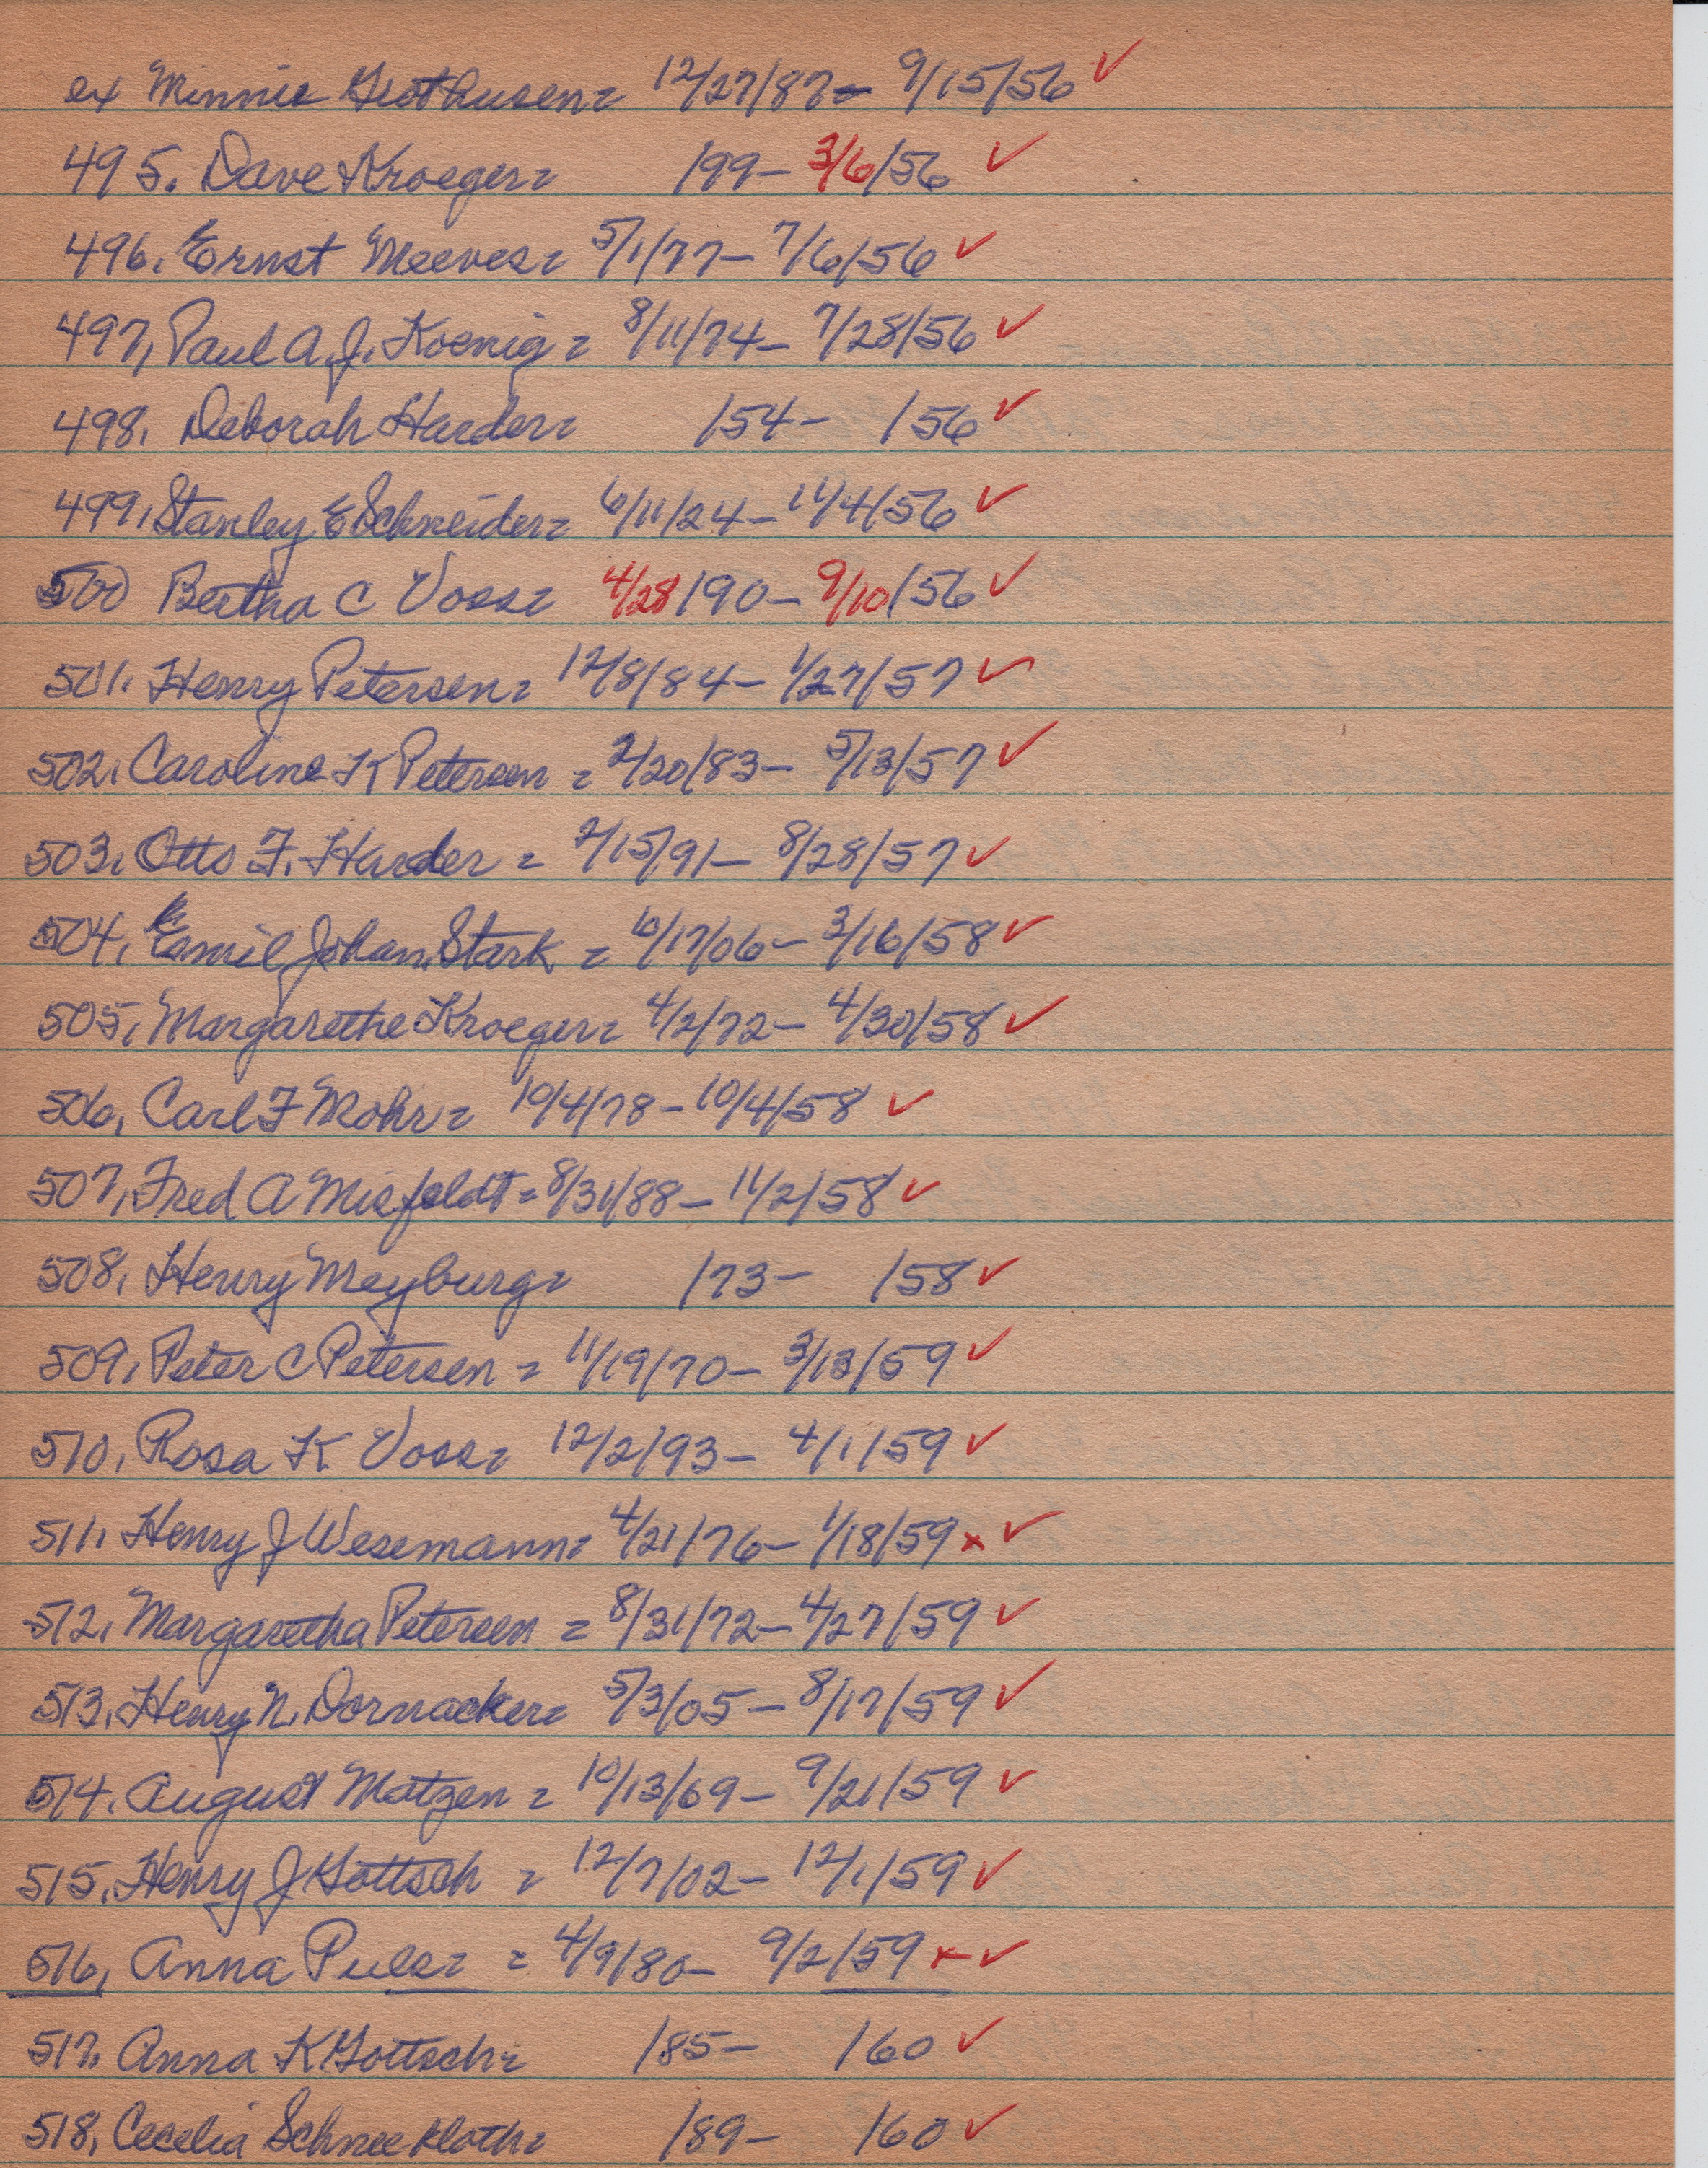 ex Minnie Grothusen= 12/27/87- 9/15/56 ✓
495. Dave Kroeger= /99- 3/6/56 ✓
496. Ernst Meeves= 5/1/77- 7/6/56 ✓
497, Paul A. J. Koenig= 8/11/74- 7/28/56 ✓
498. Deborah Harder= /54- /56 ✓
499, Stanley E Schneider= 6/11/24- 11/4/56 ✓
500 Bertha C Voss= 4/28/90- 9/10/56 ✓
501. Henry Petersen= 12/8/84- 1/27/57 ✓
502. Caroline K Petersen= 2/20/83- 5/13/57 ✓
503, Otto F. Harder= 2/15/91- 8/28/57 ✓
504, Emil Johan Stark= 6/17/06- 3/16/58 ✓
505, Margarethe Kroeger= 4/2/72- 4/30/58 ✓
506, Carl F Mohr= 10/4/78- 10/4/58 ✓
507, Fred A Misfeldt= 8/31/88- 11/2/58 ✓
508, Henry Meyburg= /73- /58 ✓
509, Peter C Petersen= 11/19/70- 3/13/59 ✓
510, Rosa K Voss= 12/2/93- 4/1/59 ✓
511. Henry J Wesemann= 4/21/76- 1/18/59 x ✓
512, Margaretha Petersen= 8/31/72- 4/27/59 ✓
513, Henry N. Dornacker= 5/3/05- 8/17/59 ✓
514. August Matzen= 10/13/69- 9/21/59 ✓
515, Henry J Gottsch= 12/7/02- 12/1/59 ✓
516, Anna Puls= = 4/9/80- 9/2/59 x ✓
517. Anna K Gottsch= /85- /60 ✓
518, Cecelia Schneekloth= /89- /60 ✓